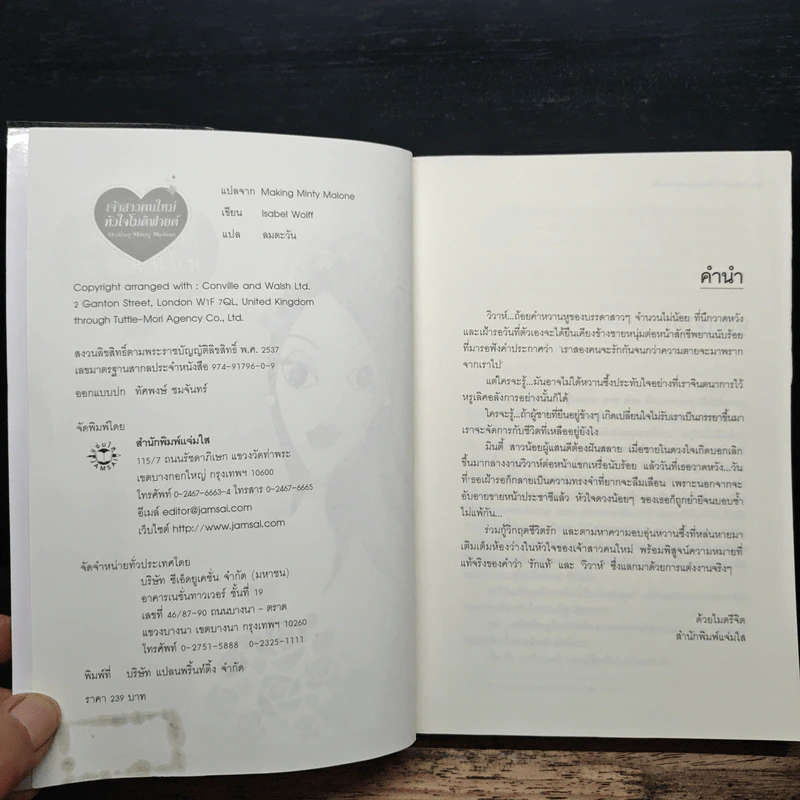 เจ้าสาวคนใหม่
หัวใจโมดิฟายด์
Making Minty Malone
แปลจาก Making Minty Malone
เขียน Isabel Wolff
แปล ลมตะวัน
Copyright arranged with : Conville and Walsh Ltd.
2 Ganton Street, London W1F 7QL, United Kingdom
through Tuttle-Mori Agency Co., Ltd.
สงวนลิขสิทธิ์ตามพระราชบัญญัติลิขสิทธิ์ พ.ศ. 2537
เลขมาตรฐานสากลประจำหนังสือ 974-91796-0-9
ออกแบบปก ทัศพงษ์ ชมจันทร์
จัดพิมพ์โดย
สำนักพิมพ์แจ่มใส
115/7 ถนนรัชดาภิเษก แขวงวัดท่าพระ
เขตบางกอกใหญ่ กรุงเทพฯ 10600
โทรศัพท์ 0-2467-6663-4 โทรสาร 0-2467-6665
อีเมล์ editor@jamsai.com
เว็บไซต์ http://www.jamsai.com
จัดจำหน่ายทั่วประเทศโดย
บริษัท ซีเอ็ดยูเคชั่น จำกัด (มหาชน)
อาคารเนชั่นทาวเวอร์ ชั้นที่ 19
เลขที่ 46/87-90 ถนนบางนา - ตราด
แขวงบางนา เขตบางนา กรุงเทพฯ 10260
โทรศัพท์ 0-2751-5888 0-2325-1111
พิมพ์ที่ บริษัท แปลนพริ้นท์ติ้ง จำกัด
ราคา 239 บาท
คำนำ
วิวาห์...ถ้อยคำหวานหูของบรรดาสาวๆ จำนวนไม่น้อย ที่นึกวาดหวัง
และเฝ้ารอวันที่ตัวเองจะได้ยืนเคียงข้างชายหนุ่มต่อหน้าสักขีพยานนับร้อย
ที่มารอฟังคำประกาศว่า 'เราสองคนจะรักกันจนกว่าความตายจะมาพราก
จากเราไป'
แต่ใครจะรู้...มันอาจไม่ได้หวานซึ้งประทับใจอย่างที่เราจินตนาการไว้
หรูเลิศอลังการอย่างนั้นก็ได้
ใครจะรู้...ถ้าผู้ชายที่ยืนอยู่ข้างๆ เกิดเปลี่ยนใจไม่รับเราเป็นภรรยาขึ้นมา
เราจะจัดการกับชีวิตที่เหลืออยู่ยังไง
มินตี้ สาวน้อยผู้แสนดีต้องฝันสลาย เมื่อชายในดวงใจเกิดบอกเลิก
ขึ้นมากลางงานวิวาห์ต่อหน้าแขกเหรื่อนับร้อย แล้ววันที่เธอวาดหวัง...วัน
ที่เธอเฝ้ารอก็กลายเป็นความทรงจำที่ยากจะลืมเลือน เพราะนอกจากจะ
อับอายขายหน้าประชาชีแล้ว หัวใจดวงน้อยๆ ของเธอก็ถูกย่ำยีจนบอบช้ำ
ไม่แพ้กัน...
ร่วมกู้วิกฤตชีวิตรัก และตามหาความอบอุ่นหวานซึ้งที่หล่นหายมา
เติมเต็มห้องว่างในหัวใจของเจ้าสาวคนใหม่ พร้อมพิสูจน์ความหมายที่
แท้จริงของคำว่า 'รักแท้' และ 'วิวาห์' ซึ่งแลกมาด้วยการแต่งงานจริงๆ
ด้วยไมตรีจิต
สำนักพิมพ์แจ่มใส